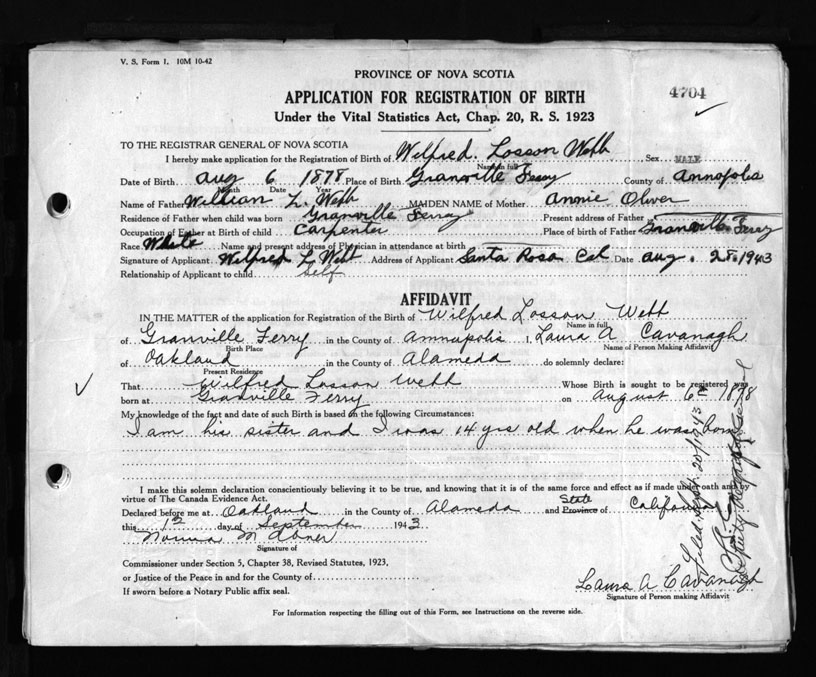 V. S. Form 1. 10M 10-42
PROVINCE OF NOVA SCOTIA
4704
APPLICATION FOR REGISTRATION OF BIRTH
Under the Vital Statistics Act, Chap. 20, R. S. 1923
TO THE REGISTRAR GENERAL OF NOVA SCOTIA
I hereby make application for the Registration of Birth of Wilfred Losson Webb Sex MALE
Name in full
Date of Birth Aug 6 1878 Place of Birth Granville Ferry County of Annapolis
Month Date Year
Name of Father William L. Webb MAIDEN NAME of Mother Annie Oliver
Residence of Father when child was born Granville Ferry Present address of Father
Occupation of Father at Birth of child Carpenter Place of birth of Father Granville Ferry
Race White Name and present address of Physician in attendance at birth
Signature of Applicant Wilfred L Webb Address of Applicant Santa Rosa Cal Date Aug. 28. 1943
Relationship of Applicant to child self
AFFIDAVIT
IN THE MATTER of the application for Registration of the Birth of Wilfred Losson Webb
Name in full
of Granville Ferry in the County of Annapolis I, Laura A Cavanagh
Birth Place Name of Person Making Affidavit
of Oakland in the County of Alameda do solemnly declare:
Present Residence
That Wilfred Losson Webb Whose Birth is sought to be registered was
born at Granville Ferry on August 6 1878
My knowledge of the fact and date of such Birth is based on the following Circumstances:
I am his sister and I was 14 yrs old when he was born
I make this solemn declaration conscientiously believing it to be true, and knowing that it is of the same force and effect as if made under oath and by
virtue of The Canada Evidence Act.
Declared before me at Oakland in the County of Alameda and State Province of California
this 1st day of September 1943
Norma M Abner
Signature of
Commissioner under Section 5, Chapter 38, Revised Statutes, 1923,
or Justice of the Peace in and for the County of
If sworn before a Notary Public affix seal.
Laura A Cavanagh
Signature of Person making Affidavit
For Information respecting the filling out of this Form, see Instructions on the reverse side.
Filed Sept. 20/1943